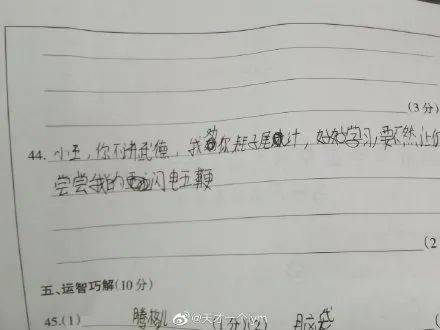 (3分)
44. 小王,你不讲武德,我劝你耗子尾计,好好学习,要不然,让你
尝尝我的闪电五鞭
(2
五、运智巧解(10分)
45.(1) 腾格儿 (1分)(2) 脑袋
@天才一个iym